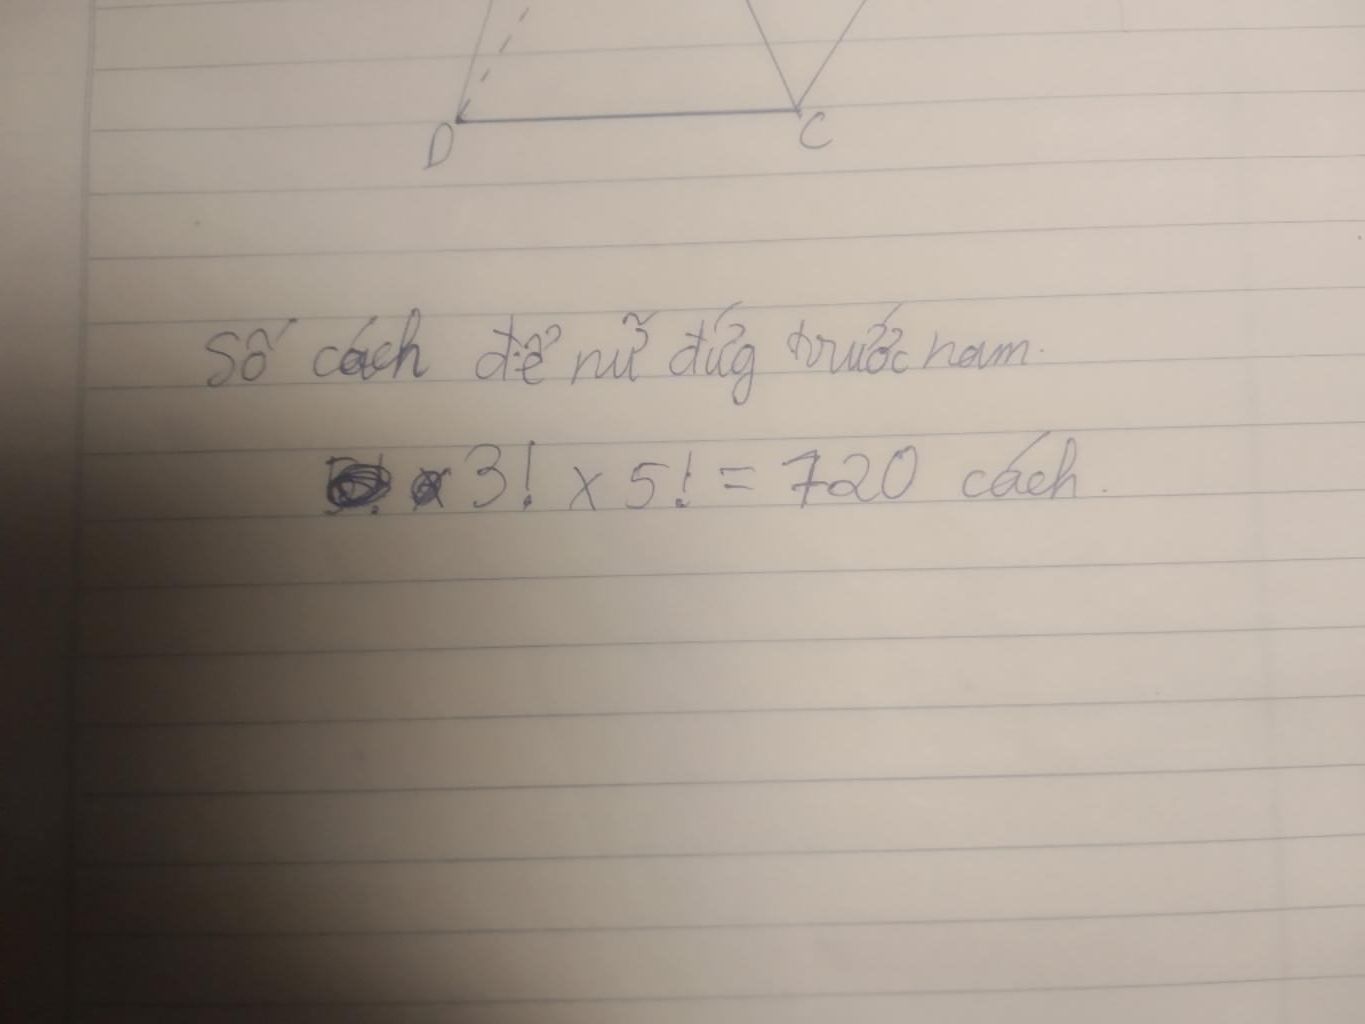 D C
Số cách để nữ đứg trước nam.
3! x 5! = 720 cách.